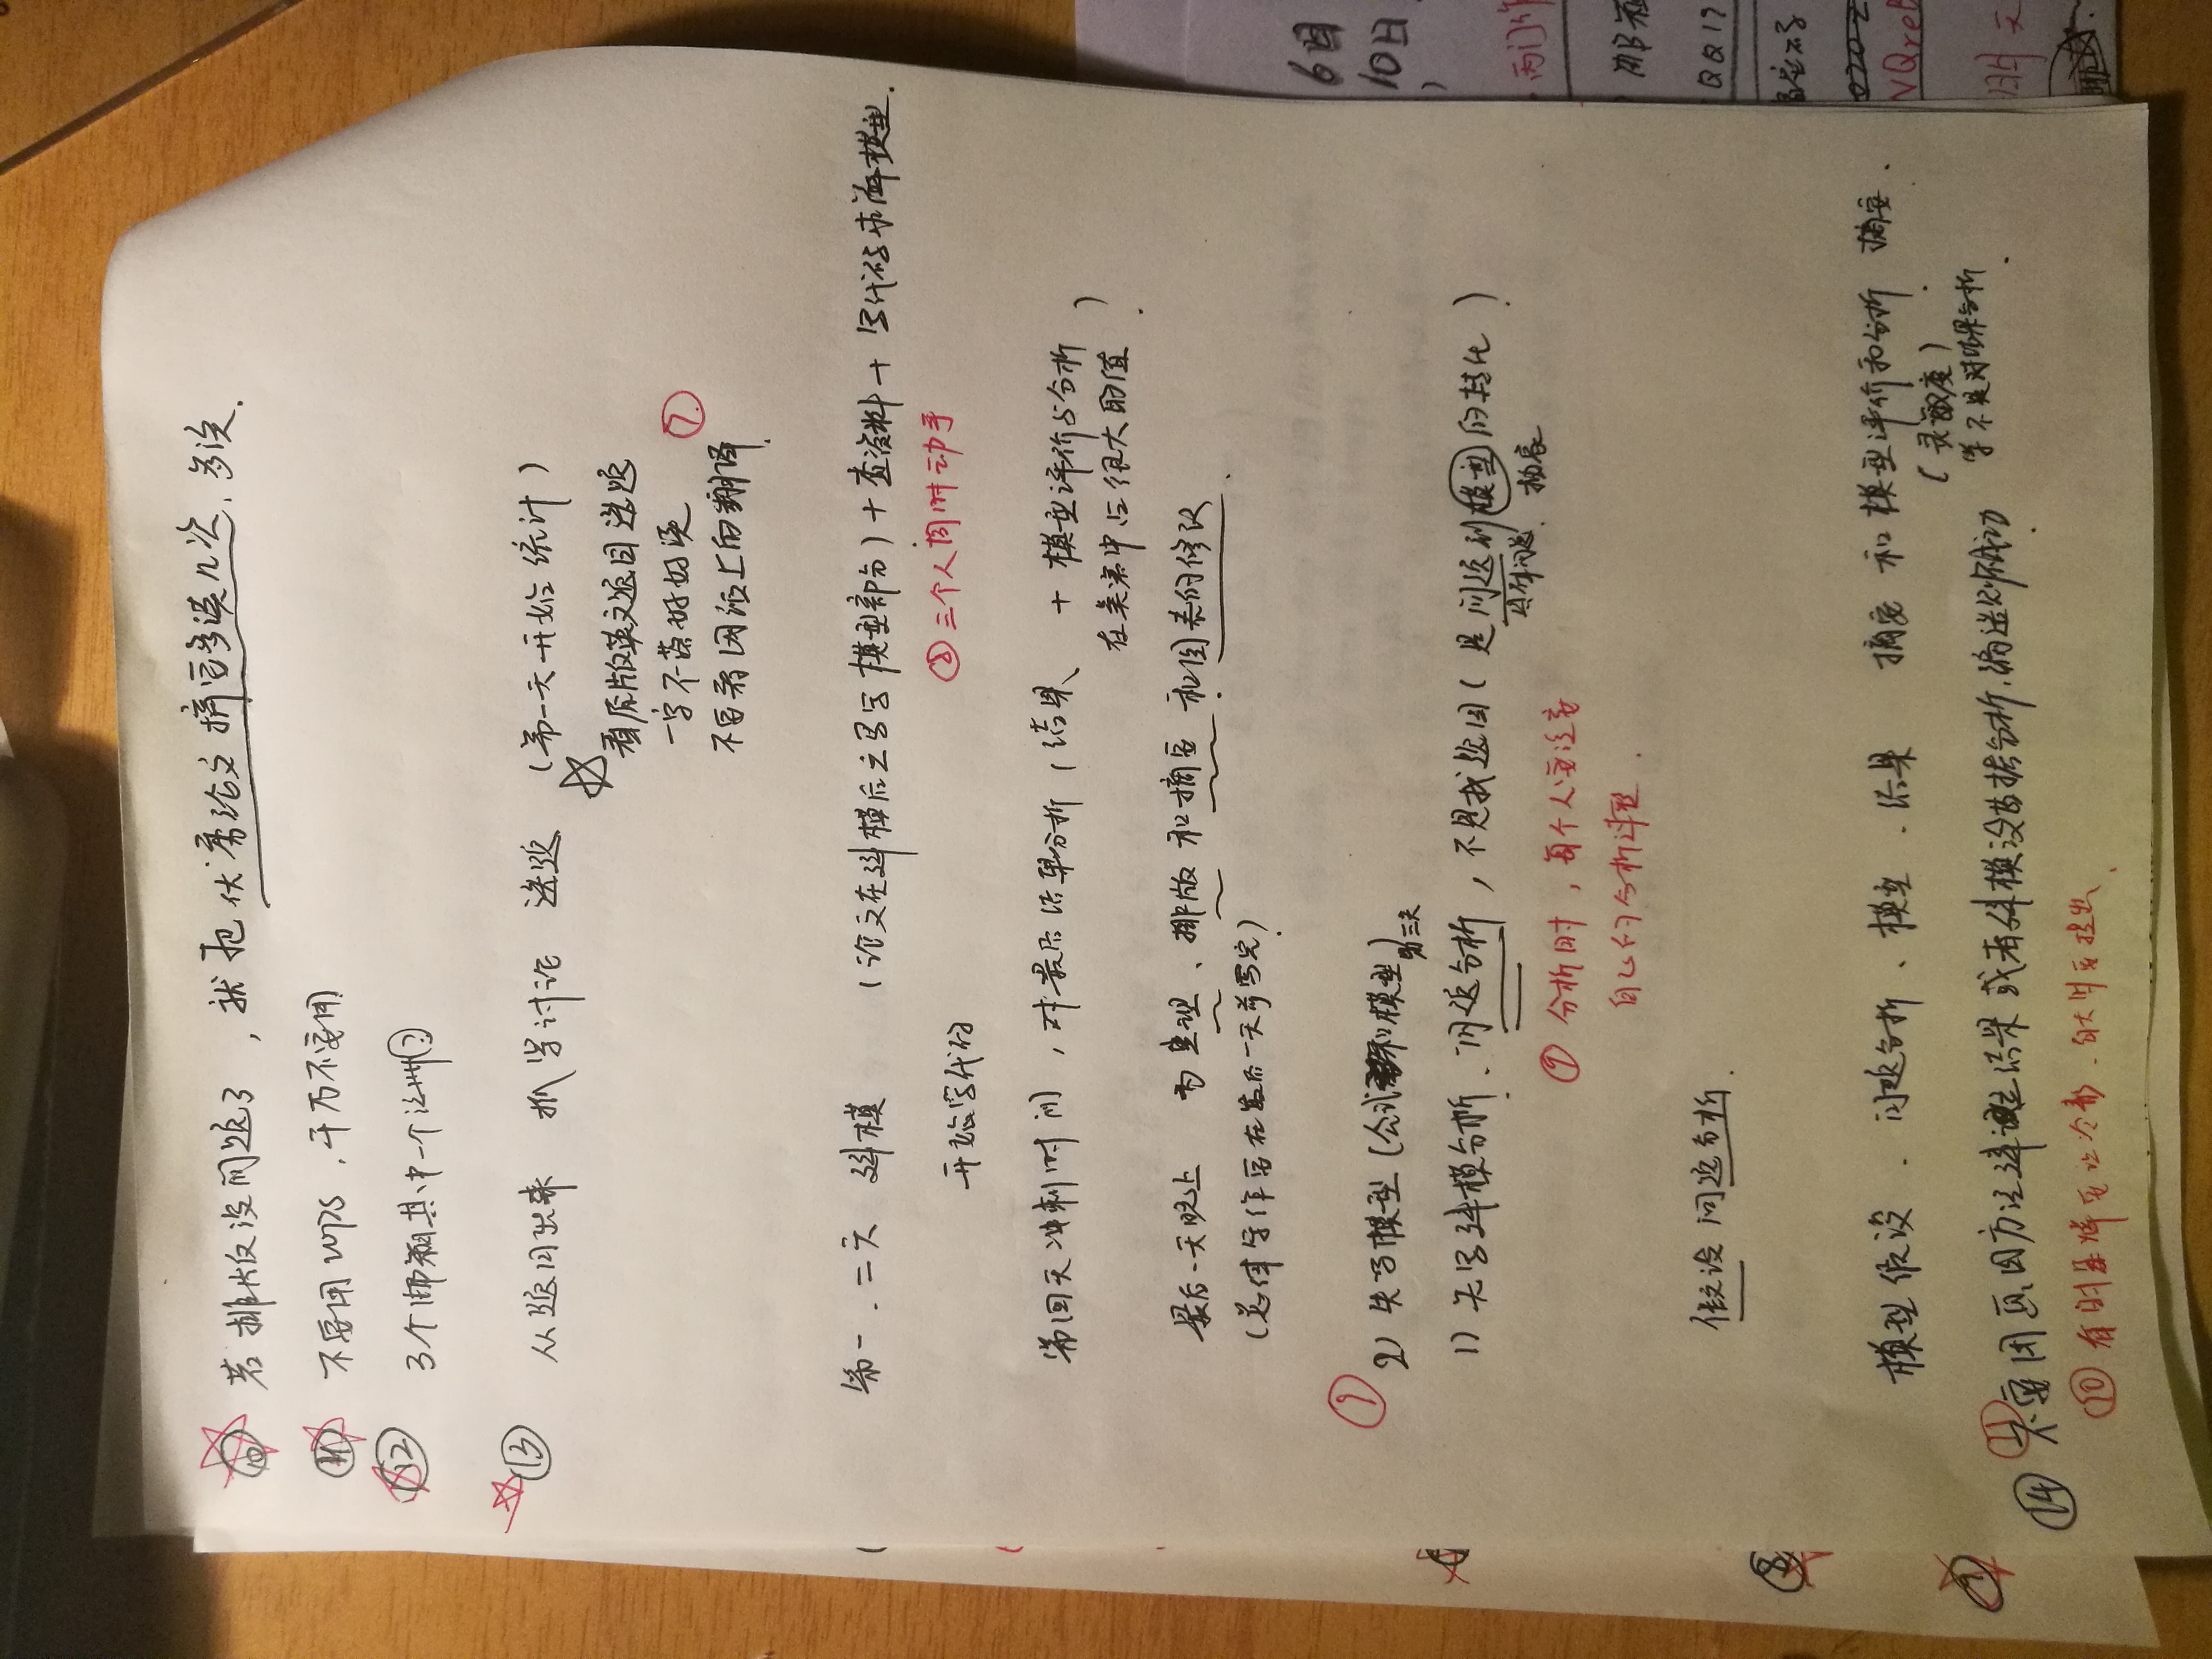 ⑩ 若排版没问题了，就把优秀论文摘要多读几次、多次.
⑪ 不要用WPS，千万不要用
⑫ 3个邮箱其中一个注册?
⑬ 从题目出来 抓紧讨论 选题 (第一天开始统计)
看原版英文题目选题
一字不落好好读 ⑦
不要看网站上的翻译.
第一、二天 建模 (论文在建模后立马写模型部分)+查资料+写代码求解模型.
⑧ 三个人同时动手
开始写代码
第四天冲刺时间，对最后结果分析(结果 + 模型评价与分析
在美赛中占很大的值)
最后一天晚上 为整理、排版和摘要和图表的修改.
(总体写作要在最后一天前写完)
⑨
2) 先写模型(公式和模型) 第三天
1) 先写建模分析、问题分析，不是找题目(是问题到模型的转化)
具体问题 抽象
⑨ 分析时，每个人要注意
自己的分析过程.
假设 问题分析.
模型假设、问题分析、模型、结果 摘要 和模型评价和分析 摘要.
(灵敏度)
不是对结果分析
⑪
⑭ 不要用 方法 结果 或者建模没数据分析,
⑩ 有时 要 冷静、 要提出
6日
10日
)
两门作
邮箱
QQ
NQre
明天
⑧